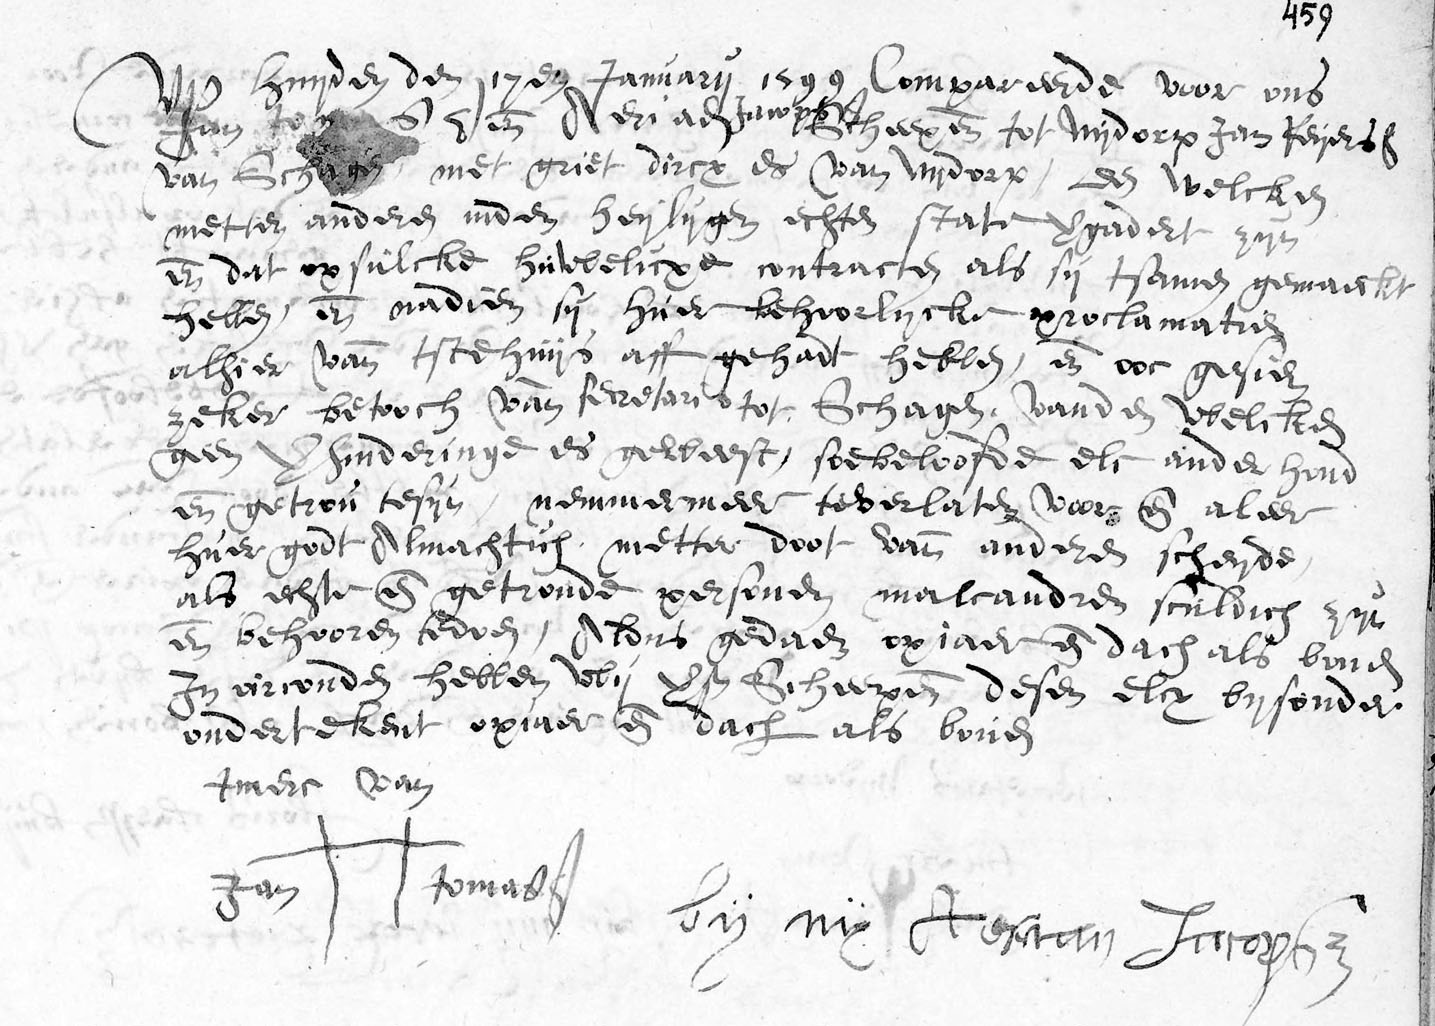 459
Up huijden den 17en Januarij 1599 Compareerde voor ons
Jan to s en Aeriaen Jacopsz Scheepen tot Nijdorp Jan Reijersz
van Schagen met griet dircx es van Nijdorp, de welcken
metten anderen inden heijlijgen echten state vgadert zijn
en dat op sulcke huwelicxe contracten als sij tsamen gemaeckt
hebben, en nadien sij huer behoorlijcke proclamatien
alhier van tstehuijs aff gehadt hebben, en ooc gesien
zeker betooch van secretaris tot Schagen, vanden welcken
geen vhinderinge es geweest, soe beloofde elc ander houd
en getrou te sijn, nemmermeer te verlaten voor en aleer
huer godt Almachtich metter doot van anderen scheijde,
als echte en getroude persoenen malcandren sculdich zijn
en behooren te doen, Aldus gedaen op jaer en dach als boven
In oirconden hebben wij vsz Scheepen desen elcx bijsonder
ondertekent op jaer en dach als boven
tmerc van
Jan tomasz
bij mij Aeriaen Jacopsz